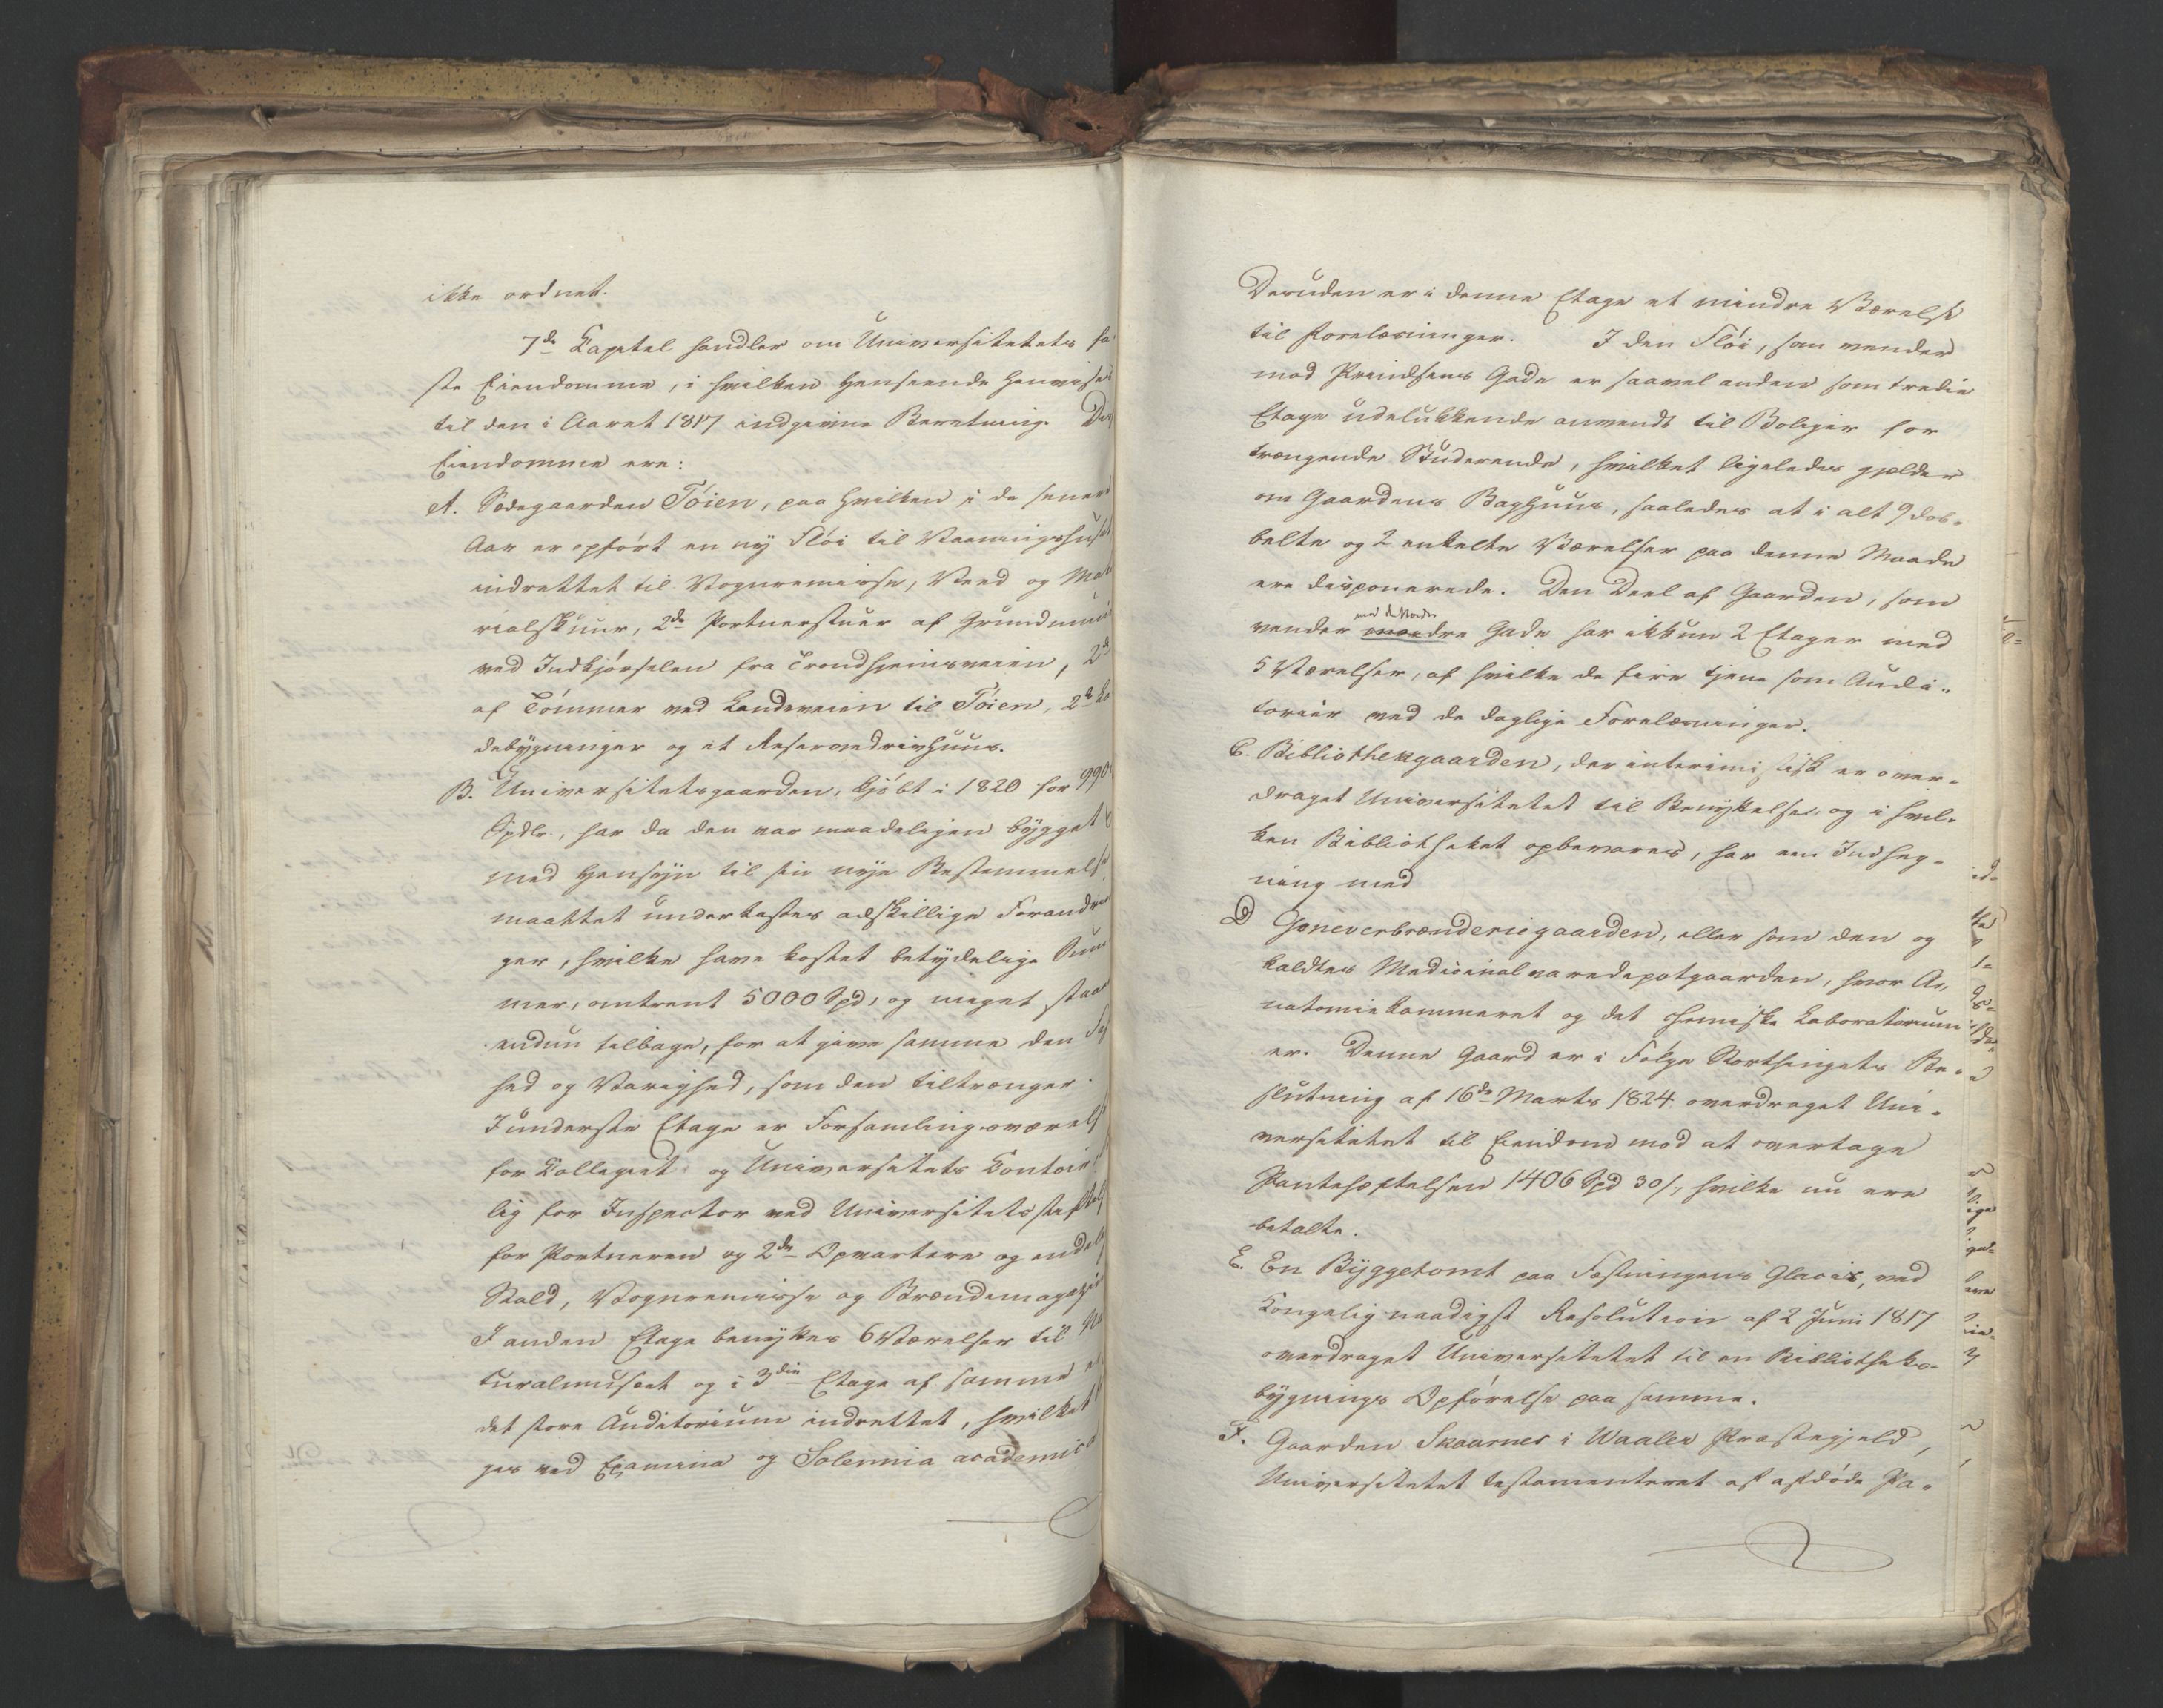 ikke ordnet.
7de Kapitel handler om Universitetets fa
ste Eiendomme, i hvilken Henseende henvises
til den i Aaret 1817 indgivne Beretning.
Eiendomme ere:
A. Sædegaarden Töien, paa hvilken i de senere
Aar er opfört en ny Flöi til Vaaningshuset
indrettet til Vognremisse, Veed og Mate
rialskuur, 2de Portnerstuer af Grundmuur
ved Indkjörselen fra Trondhjemsveien, 2de
af Tömmer ved Landeveien til Töien, 2de La
debygninger og et Reservedrivhuus.
B. Universitetsgaarden, kjöbt i 1820 for 990
Spdlr., har da den var maadeligen bygget
med Hensyn til sin nye Bestemmelse
maattet underkastes adskillige Forandrin
ger, hvilke have kostet betydelige Sum
mer, omtrent 5000 Spd, og meget staaer
endnu tilbage, for at give samme den
hed og Varighed, som den tiltrænger.
I underste Etage er Forsamlingsværelse
for Collegiet og Universitets Contoir,
lig for Inspector ved Universitetsstiftelsen
for Portneren og 2de Opvartere og endelig
Stald, Vognremisse og Brændemagazin
I anden Etage benyttes 6 Værelser til Na
turalmuseet og i 3die Etage af samme er
det store Auditorium indrettet, hvilket
ges ved Examina og Solennia academica
Desuden er i denne Etage et mindre Værelse
til Forelæsninger. I den Flöi, som vender
mod Prindsens Gade er saavel anden som tredie
Etage udelukkende anvendt til Boliger for
trængende Studerende, hvilket ligeledes gjælder
om Gaardens Baghuus, saaledes at i alt 9 dob-
belte og 2 enkelte Værelser paa denne Maade
ere disponerede. Den Deel af Gaarden, som
vender Gade har ikkun 2 Etager med
5 Værelser, af hvilke de fire tjene som Audi-
torier ved de daglige Forelæsninger.
C. Bibliothekgaarden, der interimistisk er over-
draget Universitetet til Benyttelse, og i hvil-
ken Bibliotheket opbevares, har een Indheg-
ning med
D Geneverbrænderiegaarden, eller som den og
kaldtes Medicinalvaredepotgaarden, hvor A-
natomiekammeret og det chemiske Laboratorium
er. Denne Gaard er i Fölge Storthingets Be-
slutning af 16de Marts 1824 overdraget Uni-
versitetet til Eiendom mod at overtage
Pantehæftelsen 1406 Spd 30/, hvilke nu ere
betalte.
E. En Byggetomt paa Fæstningens Glacis, ved
Kongelig naadigst Resolution af 2 Juni 1817
overdraget Universitetet til en Bibliotheks-
bygnings Opförelse paa samme.
F. Gaarden Skaarnes i Waaler Præstegjeld,
Universitetet testamenteret af afdöde Pa-